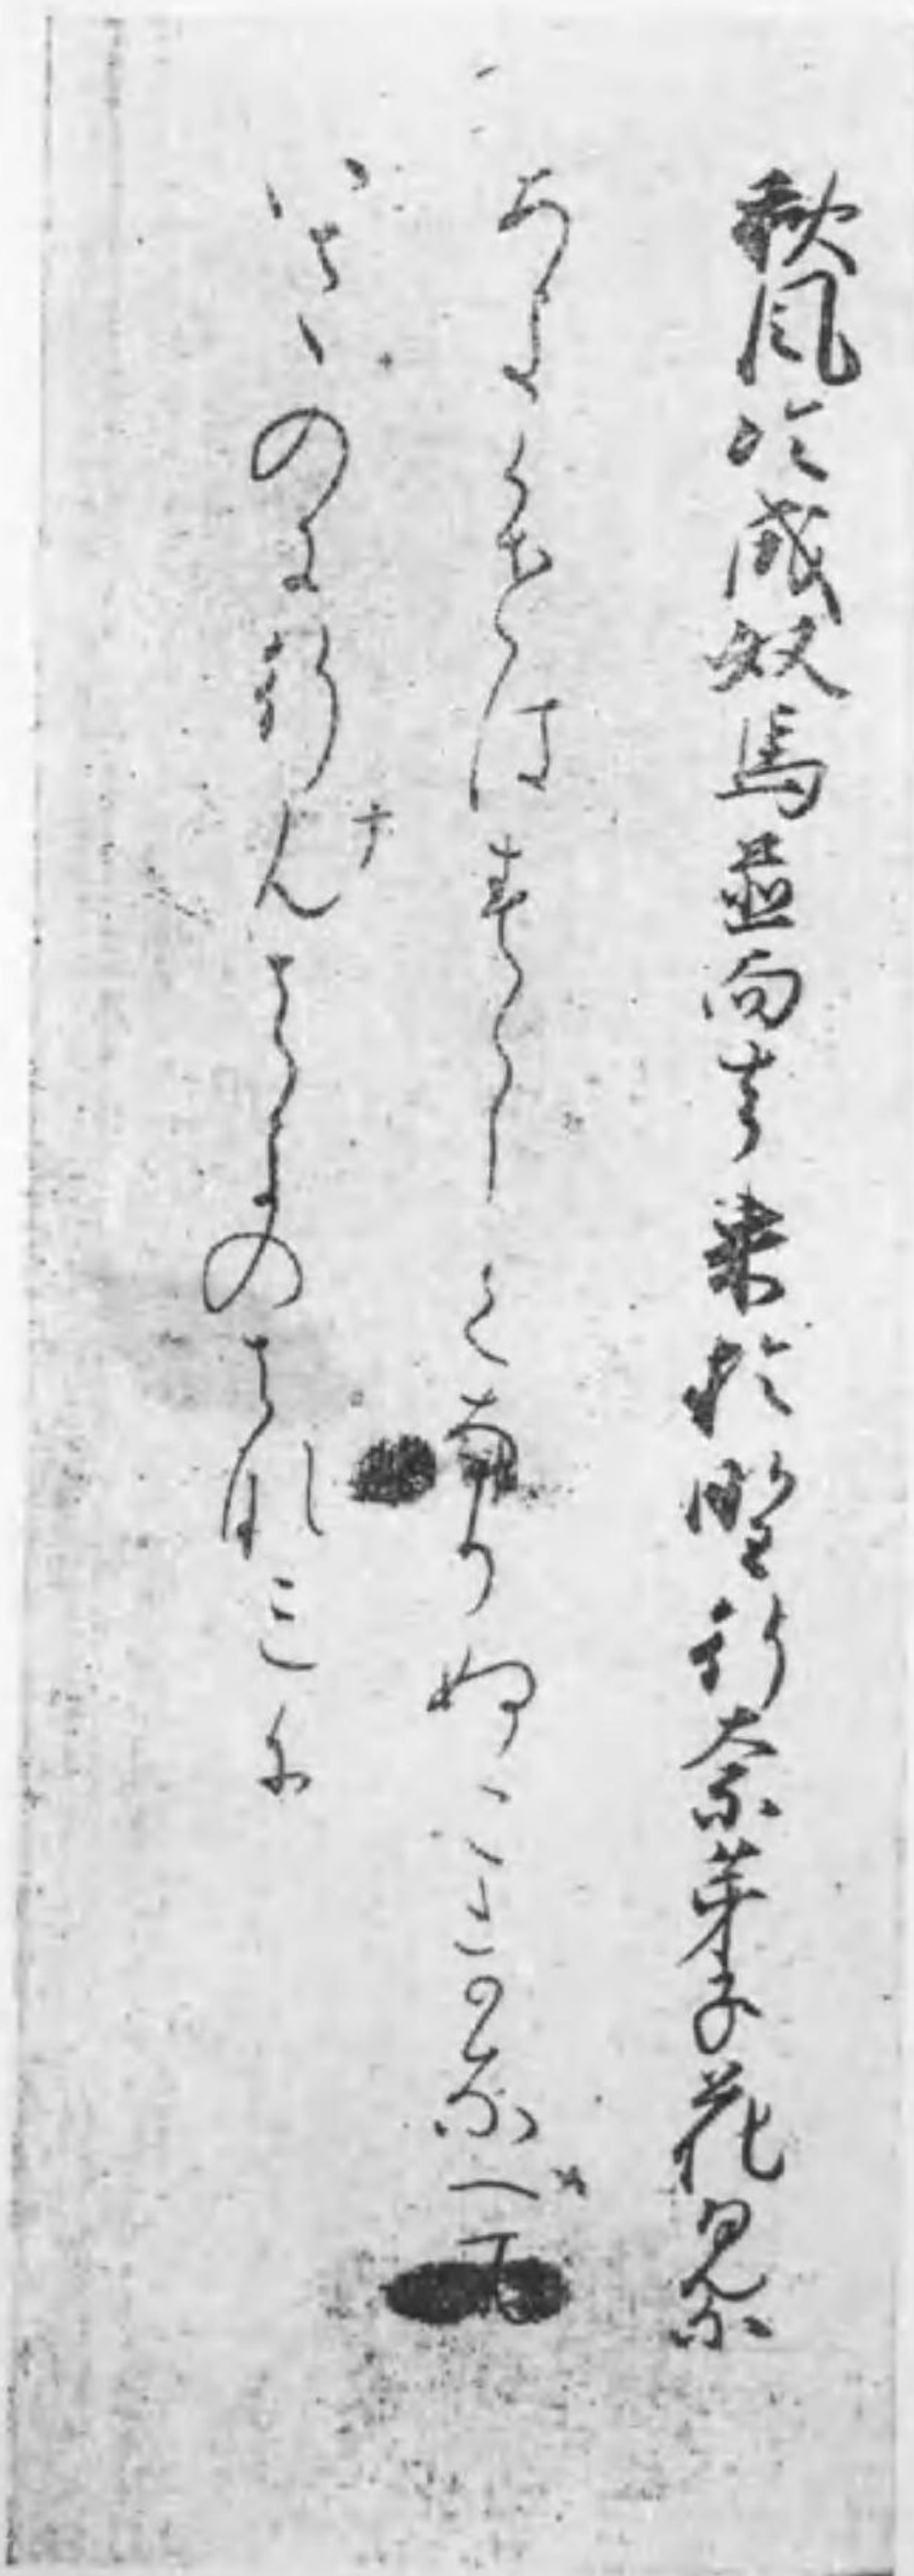 秋風冷成奴馬並而去来於野行奈芽子花見尓
あきかせはすゝしくなりぬこまなへて
いさのに行んはきのはなみに
ナ